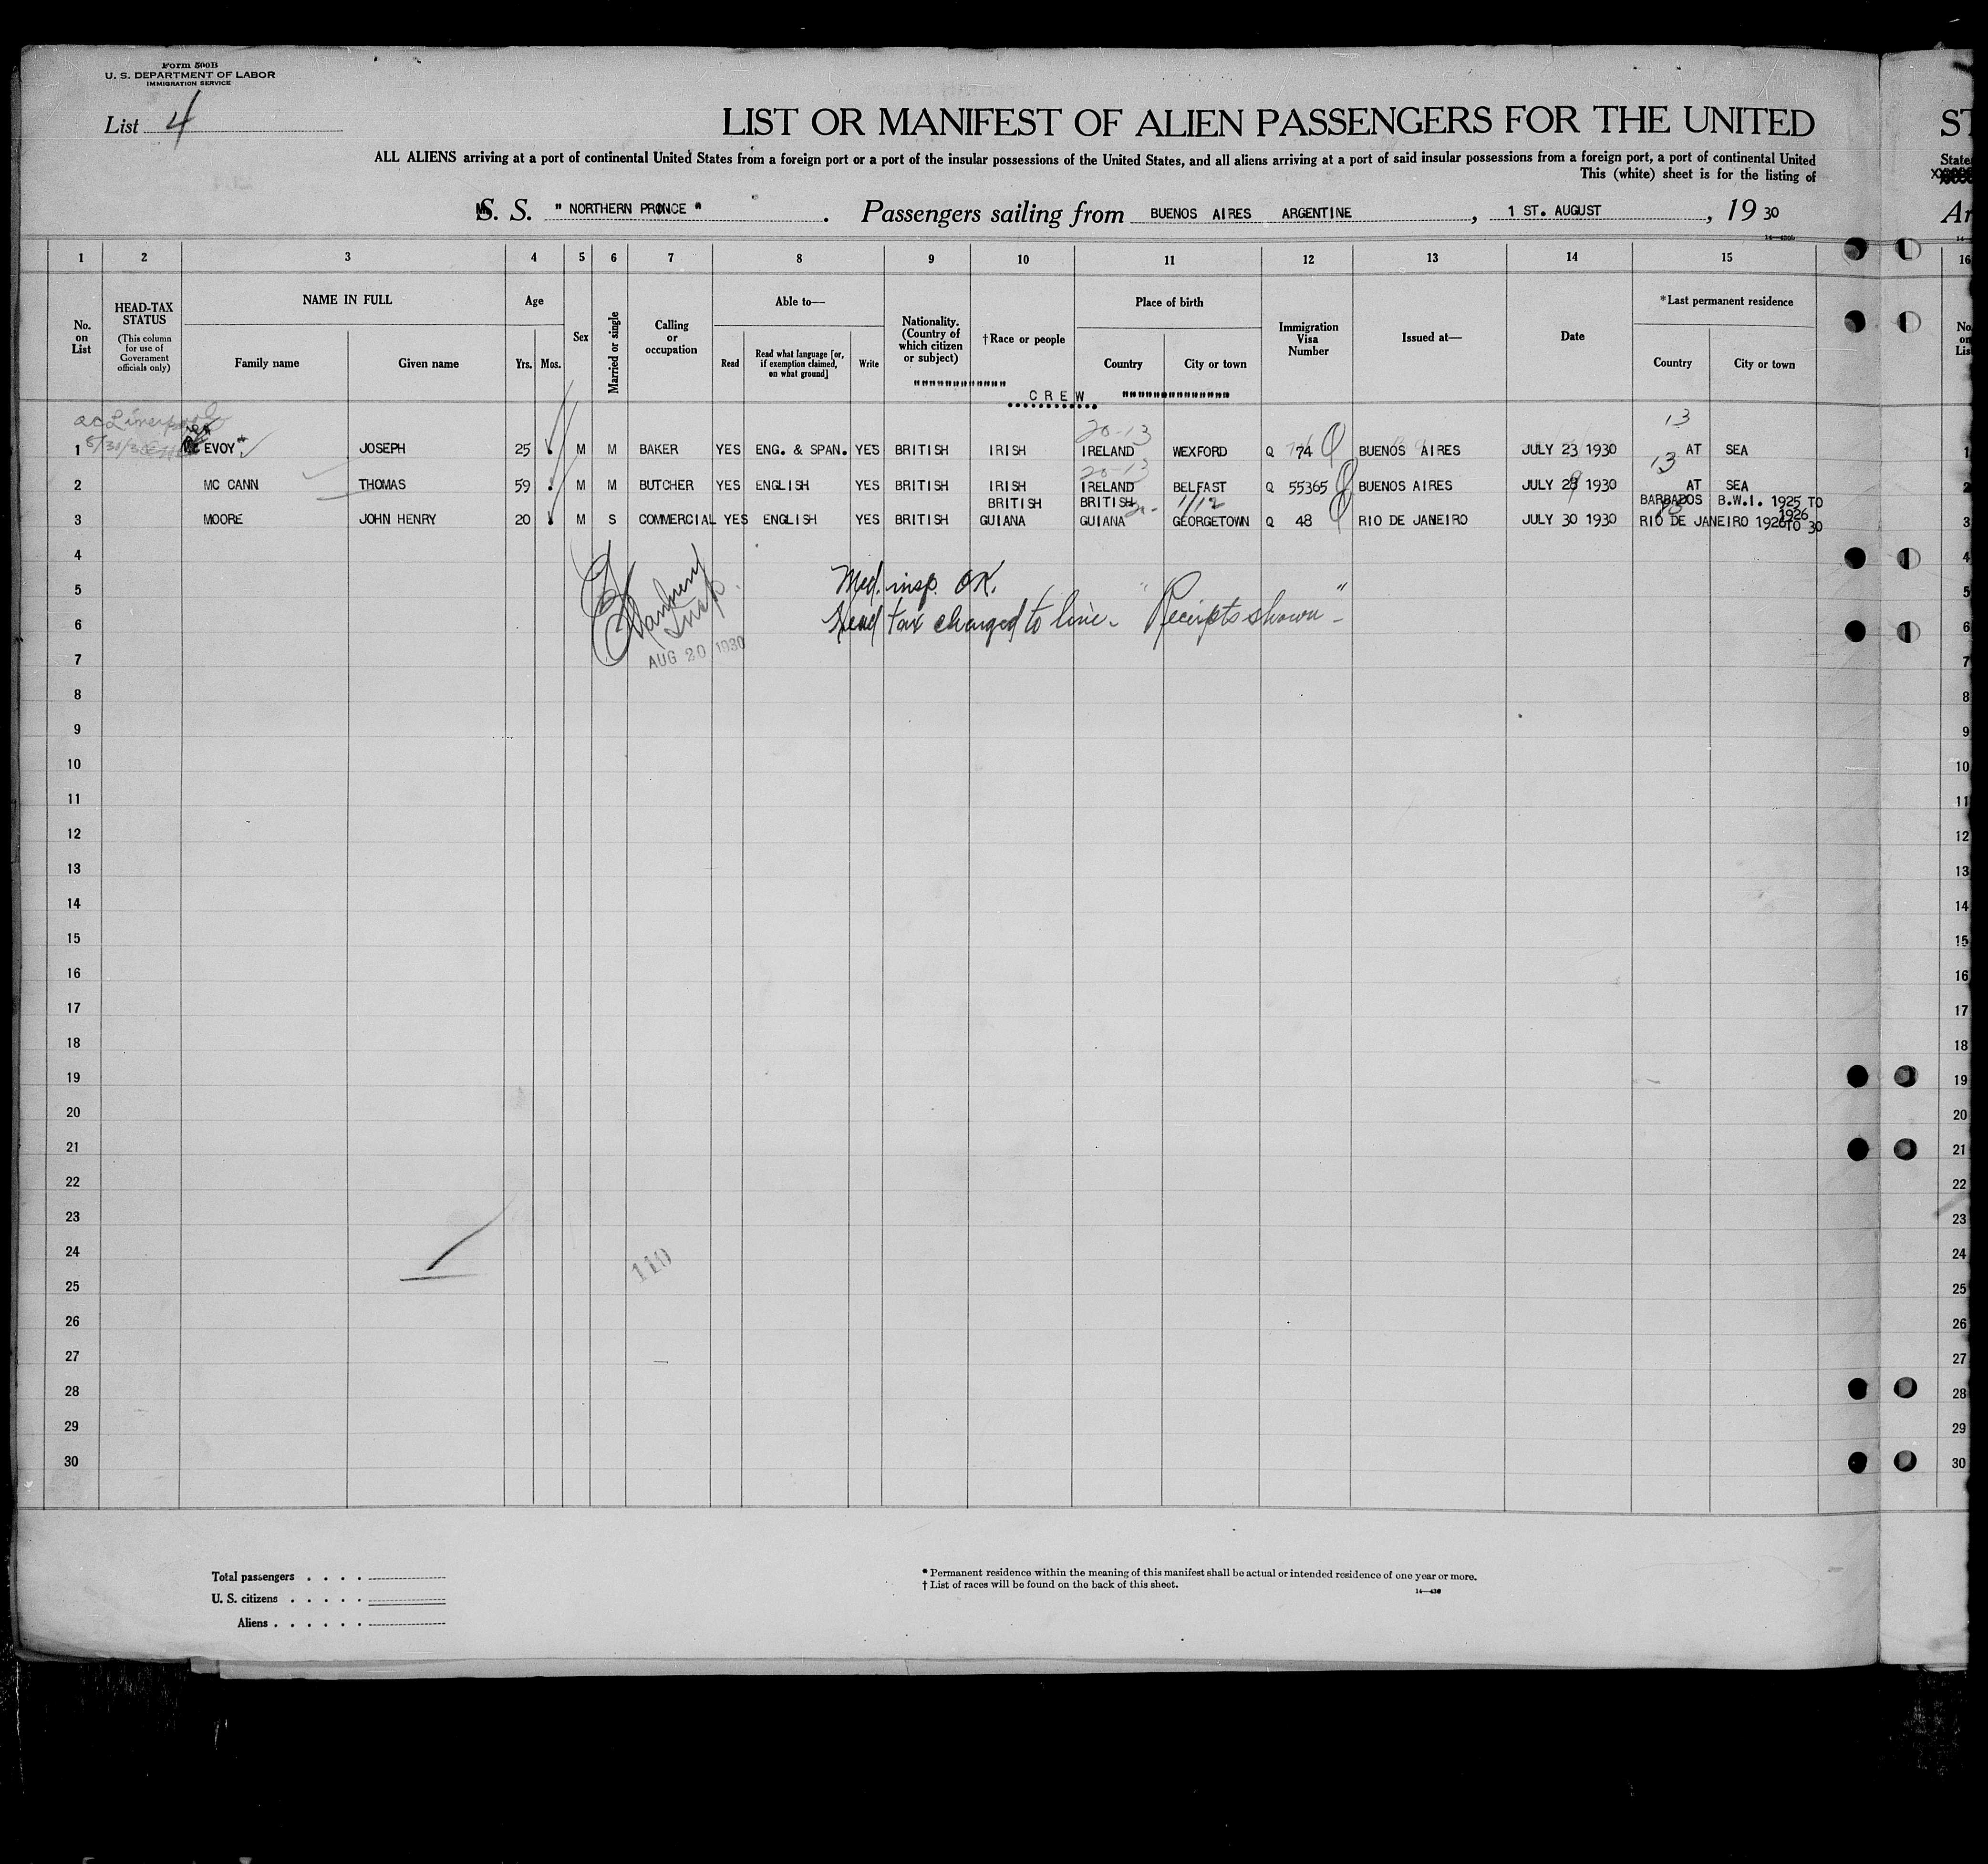 Form 500B
U. S. DEPARTMENT OF LABOR
IMMIGRATION SERVICE
List 4
LIST OR MANIFEST OF ALIEN PASSENGERS FOR THE UNITED
ST
ALL ALIENS arriving at a port of continental United States from a foreign port or a port of the insular possessions of the United States, and all aliens arriving at a port of said insular possessions from a foreign port, a port of continental United
State
This (white) sheet is for the listing of
S. S. " NORTHERN PRINCE " . Passengers sailing from BUENOS AIRES ARGENTINE , 1 ST. AUGUST , 19 30
Ar
1 2 3 4 5 6 7 8 9 10 11 12 13 14 15 16
No. on List
HEAD-TAX STATUS
(This column for use of Government officials only)
NAME IN FULL
Family name Given name
Age
Yrs. Mos.
Sex
Married or single
Calling or occupation
Able to—
Read
Read what language [or, if exemption claimed, on what ground]
Write
Nationality. (Country of which citizen or subject)
†Race or people
Place of birth
Country City or town
Immigration Visa Number
Issued at—
Date
*Last permanent residence
Country City or town
""""""""""""" CREW """""""""""""""
20-13 13
1 EVOY JOSEPH 25 M M BAKER YES ENG. & SPAN. YES BRITISH IRISH IRELAND WEXFORD Q 74 BUENOS AIRES JULY 23 1930 AT SEA
20-13 13
2 MC CANN THOMAS 59 M M BUTCHER YES ENGLISH YES BRITISH IRISH IRELAND BELFAST Q 55365 BUENOS AIRES JULY 28 1930 AT SEA
BRITISH BRITISH 1/12 BARBADOS B.W.I. 1925 TO 1926
3 MOORE JOHN HENRY 20 M S COMMERCIAL YES ENGLISH YES BRITISH GUIANA GUIANA GEORGETOWN Q 48 RIO DE JANEIRO JULY 30 1930 RIO DE JANEIRO 1926 TO 30
4
5 Med. insp. OK.
6 Head tax charged to line. "Receipts shown"
Insp.
AUG 20 1930
7
8
9
10
11
12
13
14
15
16
17
18
19
20
21
22
23
24
110
25
26
27
28
29
30
Total passengers . . . .
U. S. citizens . . . . .
Aliens . . . . . .
* Permanent residence within the meaning of this manifest shall be actual or intended residence of one year or more.
† List of races will be found on the back of this sheet.
14—430